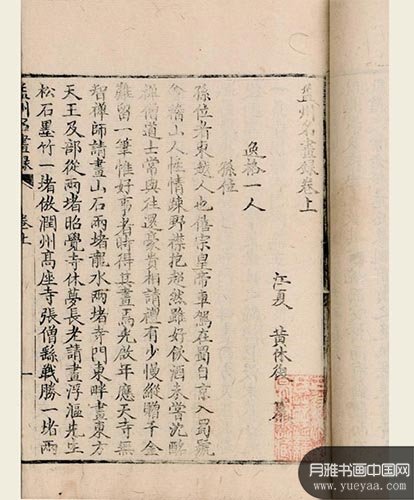 益州名畫錄卷上
江夏 黃休復 纂
逸格一人
孫位
孫位者東越人也僖宗皇帝車駕在蜀自京入蜀號
會稽山人性情疎野襟抱超然雖好飲酒未嘗沈酩
禪僧道士常與往還豪貴相請禮有少慢縱贈千金
難留一筆惟好事者時得其畫焉光啟年應天寺無
智禪師請畫山石兩堵龍水兩堵寺門東畔畫東方
天王及部從兩堵昭覺寺休夢長老請畫浮漚先生
松石墨竹一堵倣潤州高座寺張僧繇戰勝一堵兩
益州名畫錄 卷上 一
月雅书画中国网
www.yueyaa.com